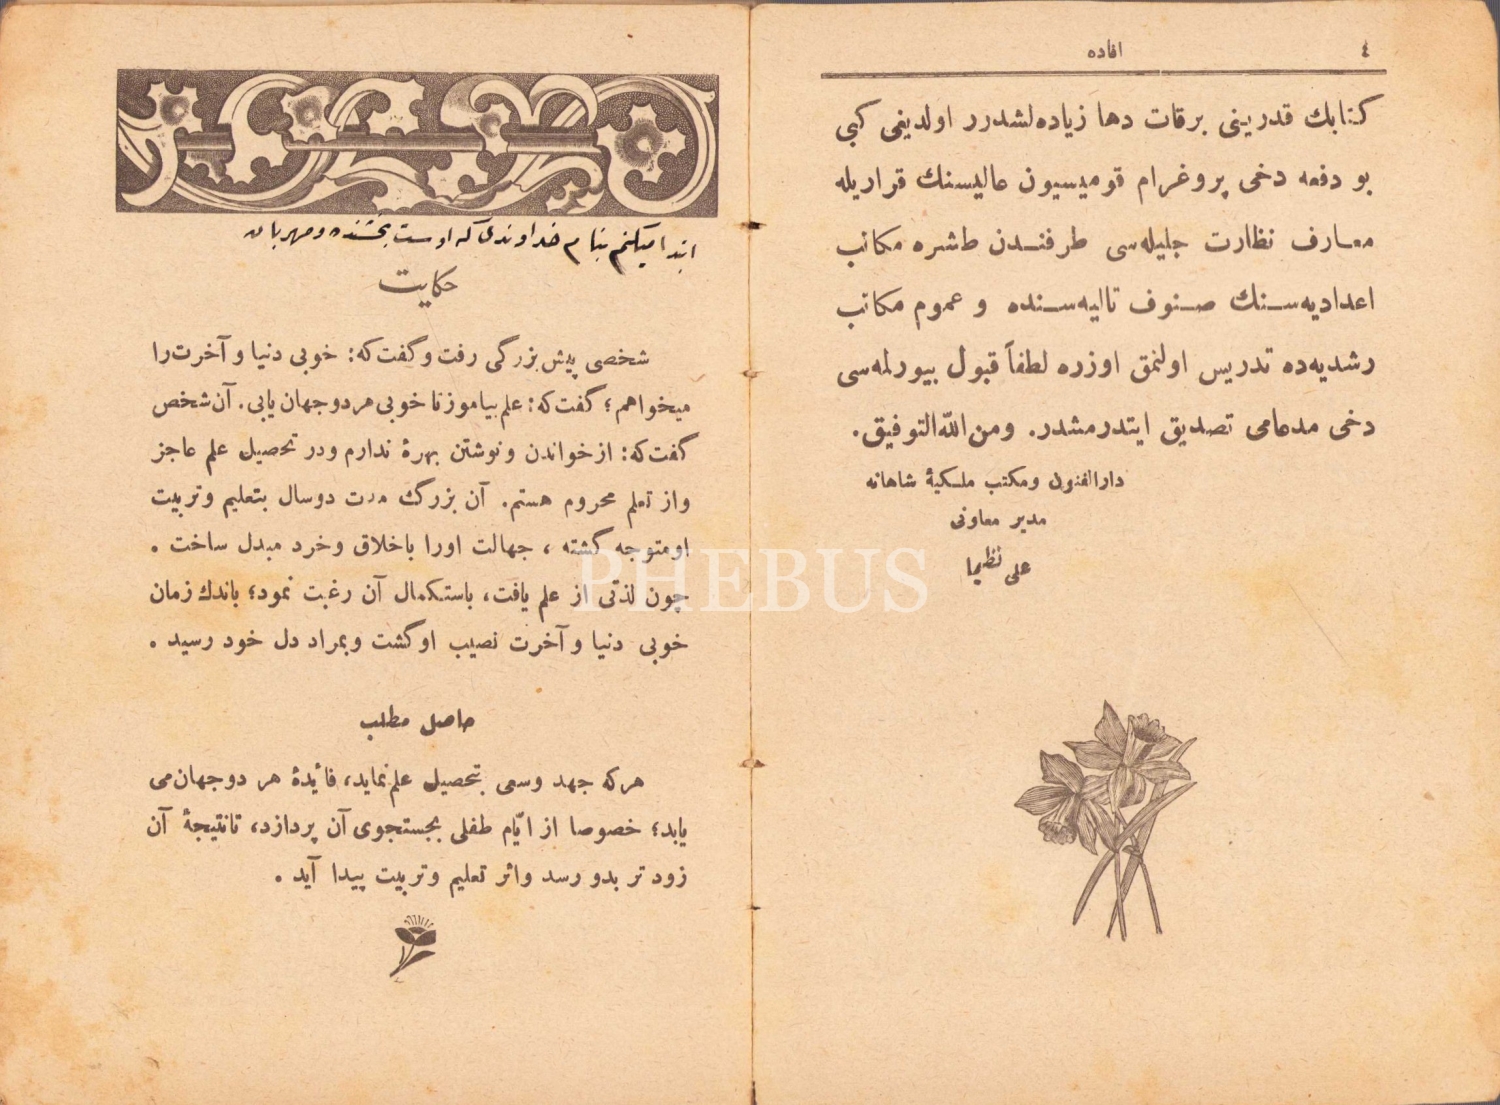 ٤
افاده
كتابك قدرينى برقات دها زياده‌لشدرر اولديغى كبى
بو دفعه دخى پروغرام قوميسيون عاليسنك قراريله
معارف نظارت جليله‌سى طرفندن طشره مكاتب
اعداديه‌سنك صنوف تاليه‌سنده و عموم مكاتب
رشديه‌ده تدريس اولنمق اوزره لطفاً قبول بيورلمه‌سى
دخى مدعامى تصديق ايتدرمشدر. ومن الله التوفيق.
دارالفنون ومكتب ملكيهٔ شاهانه
مدير معاونى
على نظيما
ابتدا ميكنم بنام خداوندى كه اوست بخشنده و مهربان
حكايت
شخصى پيش بزرگى رفت و گفت كه: خوبى دنيا و آخرت را
ميخواهم؛ گفت كه: علم بياموز تا خوبى هر دو جهان يابى. آن شخص
گفت كه: از خواندن و نوشتن بهرهٔ ندارم و در تحصيل علم عاجز
و از تعلم محروم هستم. آن بزرگ مدت دو سال بتعليم و تربيت
او متوجه گشته ، جهالت اورا باخلاق و خرد مبدل ساخت .
چون لذتى از علم يافت، باستكمال آن رغبت نمود؛ باندك زمان
خوبى دنيا و آخرت نصيب او گشت و بمراد دل خود رسيد .
حاصل مطلب
هركه جهد وسعى بتحصيل علم نمايد، فائدهٔ هر دو جهان مى
يابد؛ خصوصا از ايّام طفلى بجستجوى آن پردازد، تا نتيجهٔ آن
زودتر بدو رسد و اثر تعليم و تربيت پيدا آيد .
PHEBUS